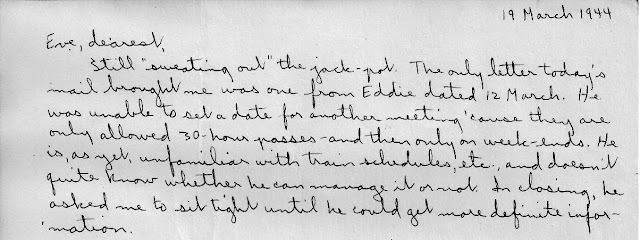 19 March 1944
Eve, dearest,
Still "sweating out" the jack-pot. The only letter today's
mail brought me was one from Eddie dated 12 March. He
was unable to set a date for another meeting 'cause they are
only allowed 30-hour passes - and then only on week-ends. He
is, as yet, unfamiliar with train schedules, etc., and doesn't
quite know whether he can manage it or not. In closing, he
asked me to sit tight until he could get more definite infor-
'mation.